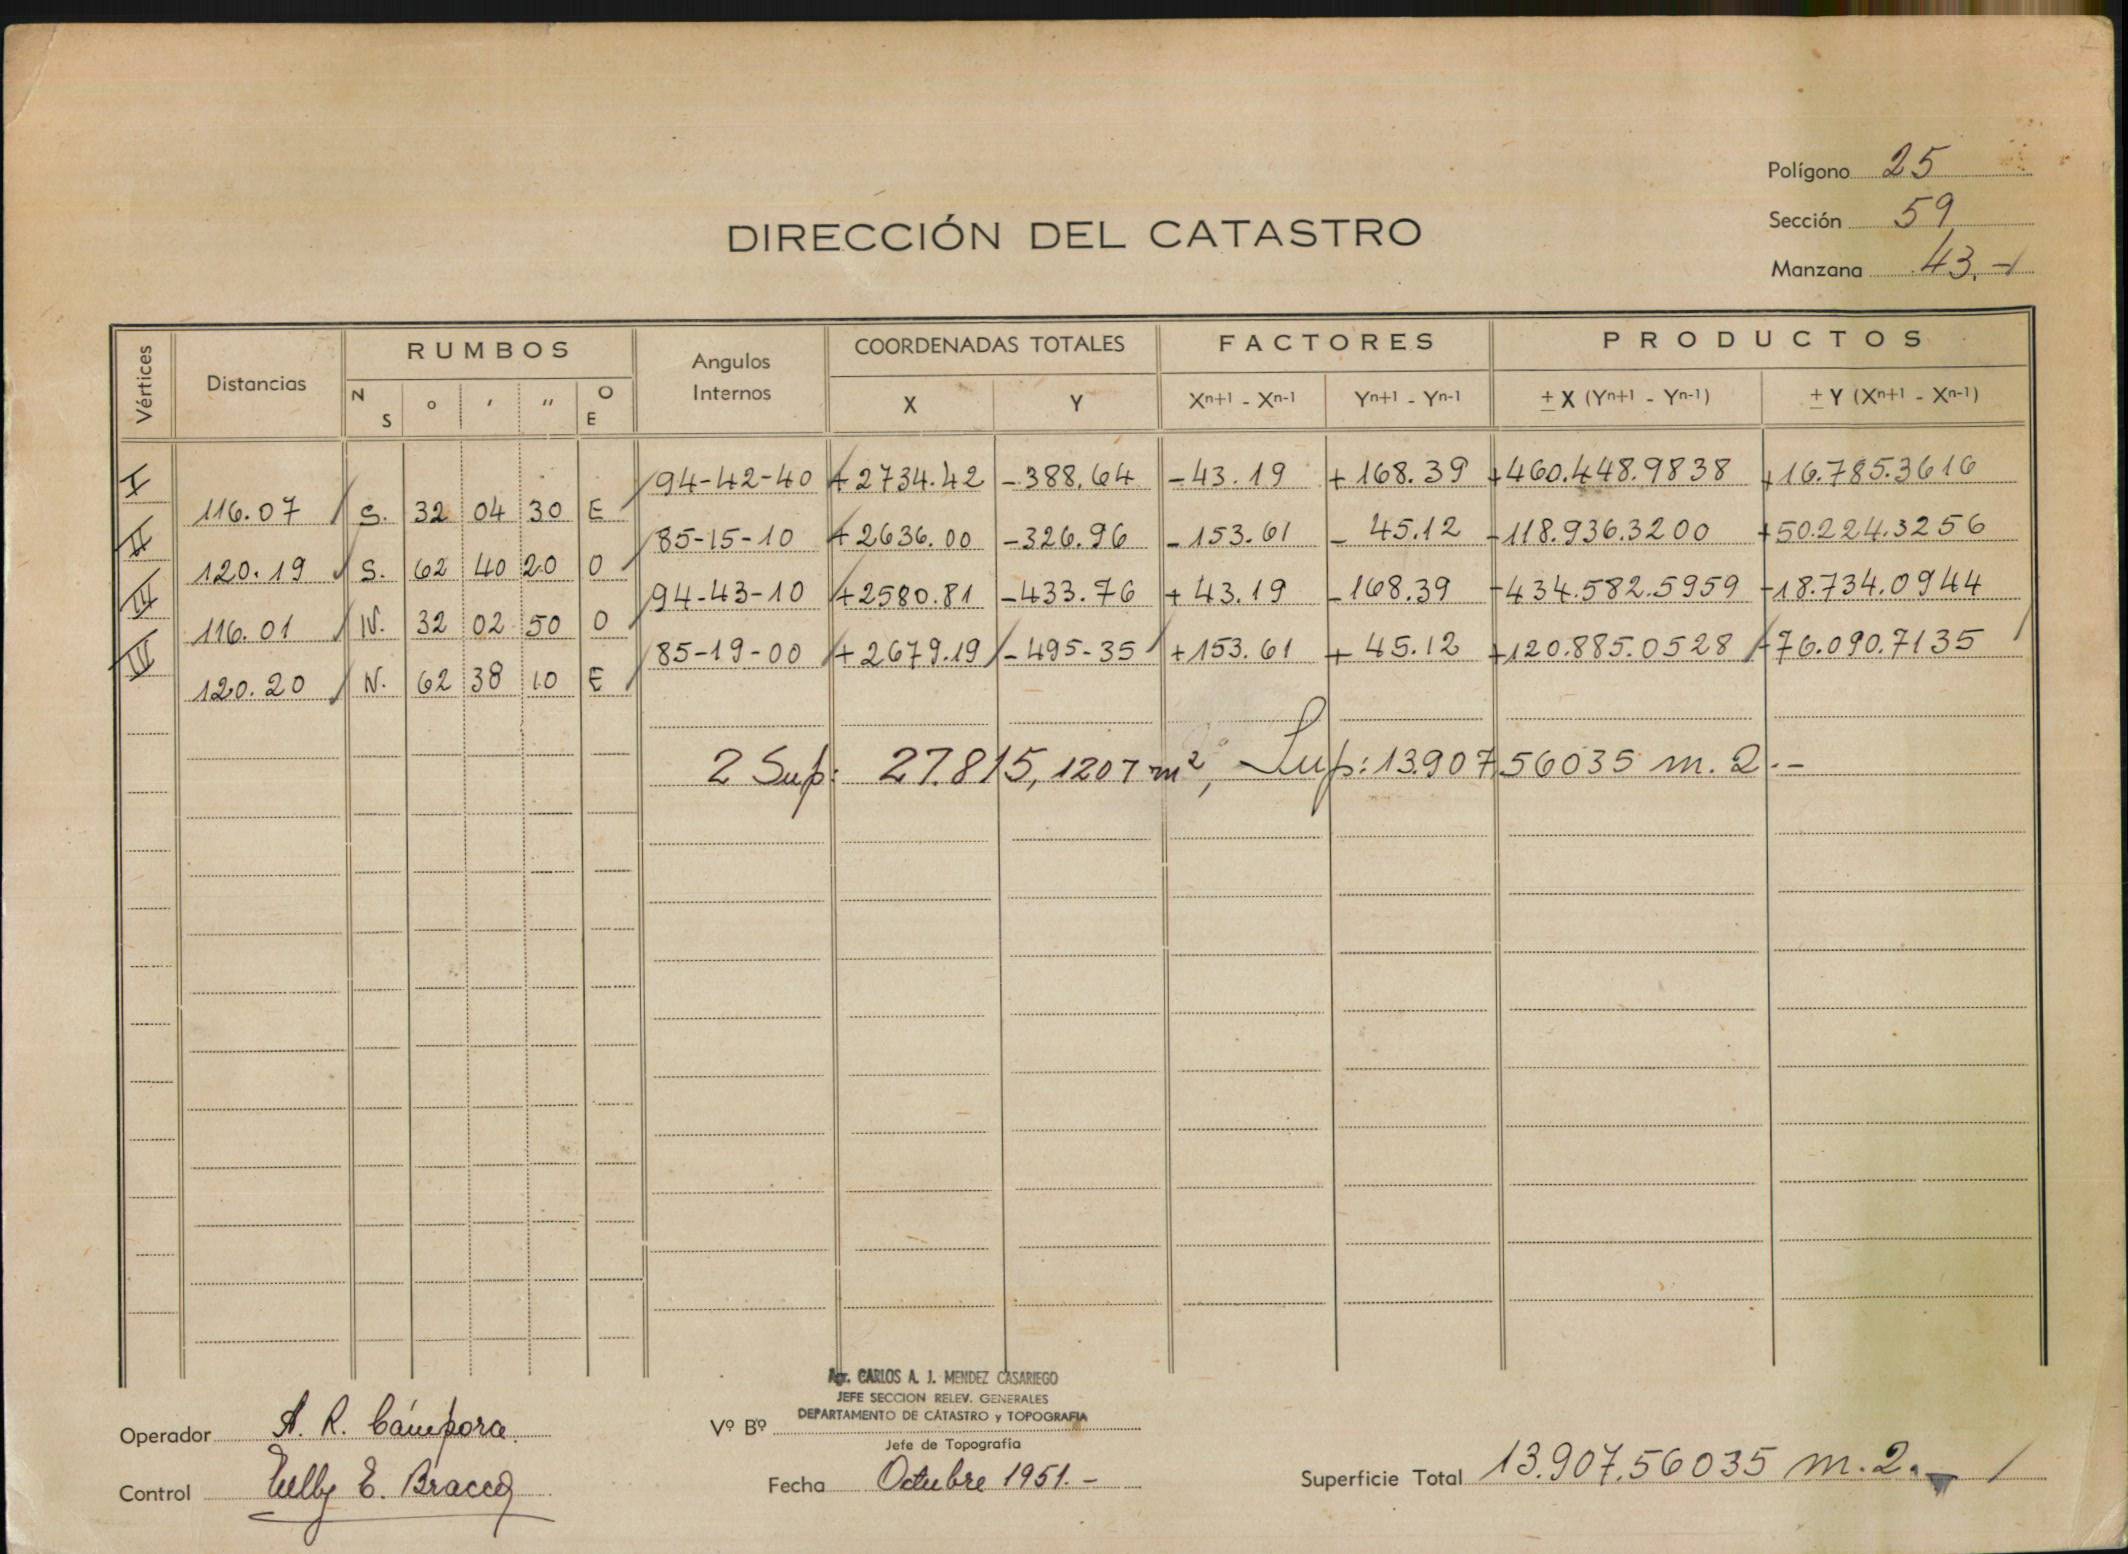 Polígono 25
Sección 59
Manzana 43.-
DIRECCIÓN DEL CATASTRO
Vértices Distancias RUMBOS Angulos Internos COORDENADAS TOTALES FACTORES PRODUCTOS
N S ° ' " O E X Y Xn+1 - Xn-1 Yn+1 - Yn-1 ± X (Yn+1 - Yn-1) ± Y (Xn+1 - Xn-1)
I 94-42-40 +2734.42 -388.64 -43.19 +168.39 +460.448.9838 +16.785.3616
116.07 S. 32 04 30 E
II 85-15-10 +2636.00 -326.96 -153.61 -45.12 -118.936.3200 +50.224.3256
120.19 S. 62 40 20 O
III 94-43-10 +2580.81 -433.76 +43.19 -168.39 -434.582.5959 -18.734.0944
116.01 N. 32 02 50 O
IV 85-19-00 +2679.19 -495-35 +153.61 +45.12 +120.885.0528 -76.090.7135
120.20 N. 62 38 10 E
2 Sup: 27.815,1207 m², Sup: 13.907,56035 m. 2.-
Agr. CARLOS A. J. MENDEZ CASARIEGO
JEFE SECCION RELEV. GENERALES
DEPARTAMENTO DE CATASTRO y TOPOGRAFIA
Operador A. R. Cámpora. Vº Bº
Jefe de Topografía
Control E. Fecha Octubre 1951.- Superficie Total 13.907,56035 m.2.-